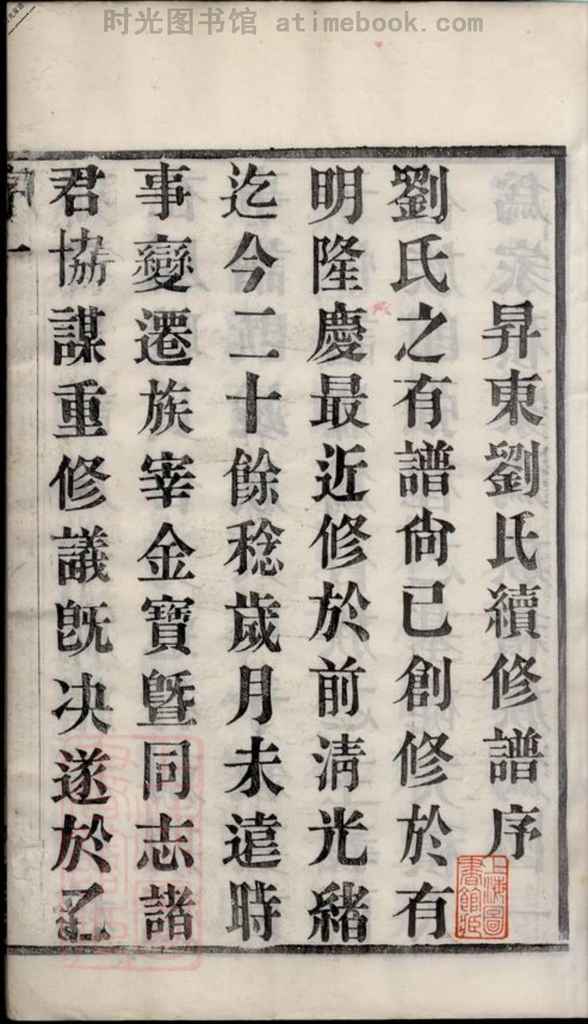 时光图书馆 atimebook.com
昇東劉氏續修譜序
劉氏之有譜尚已創修於有
明隆慶最近修於前清光緒
迄今二十餘稔歲月未遠時
事變遷族宰金寶暨同志諸
君協謀重修議既决遂於乙
序 一
上海圖書館藏